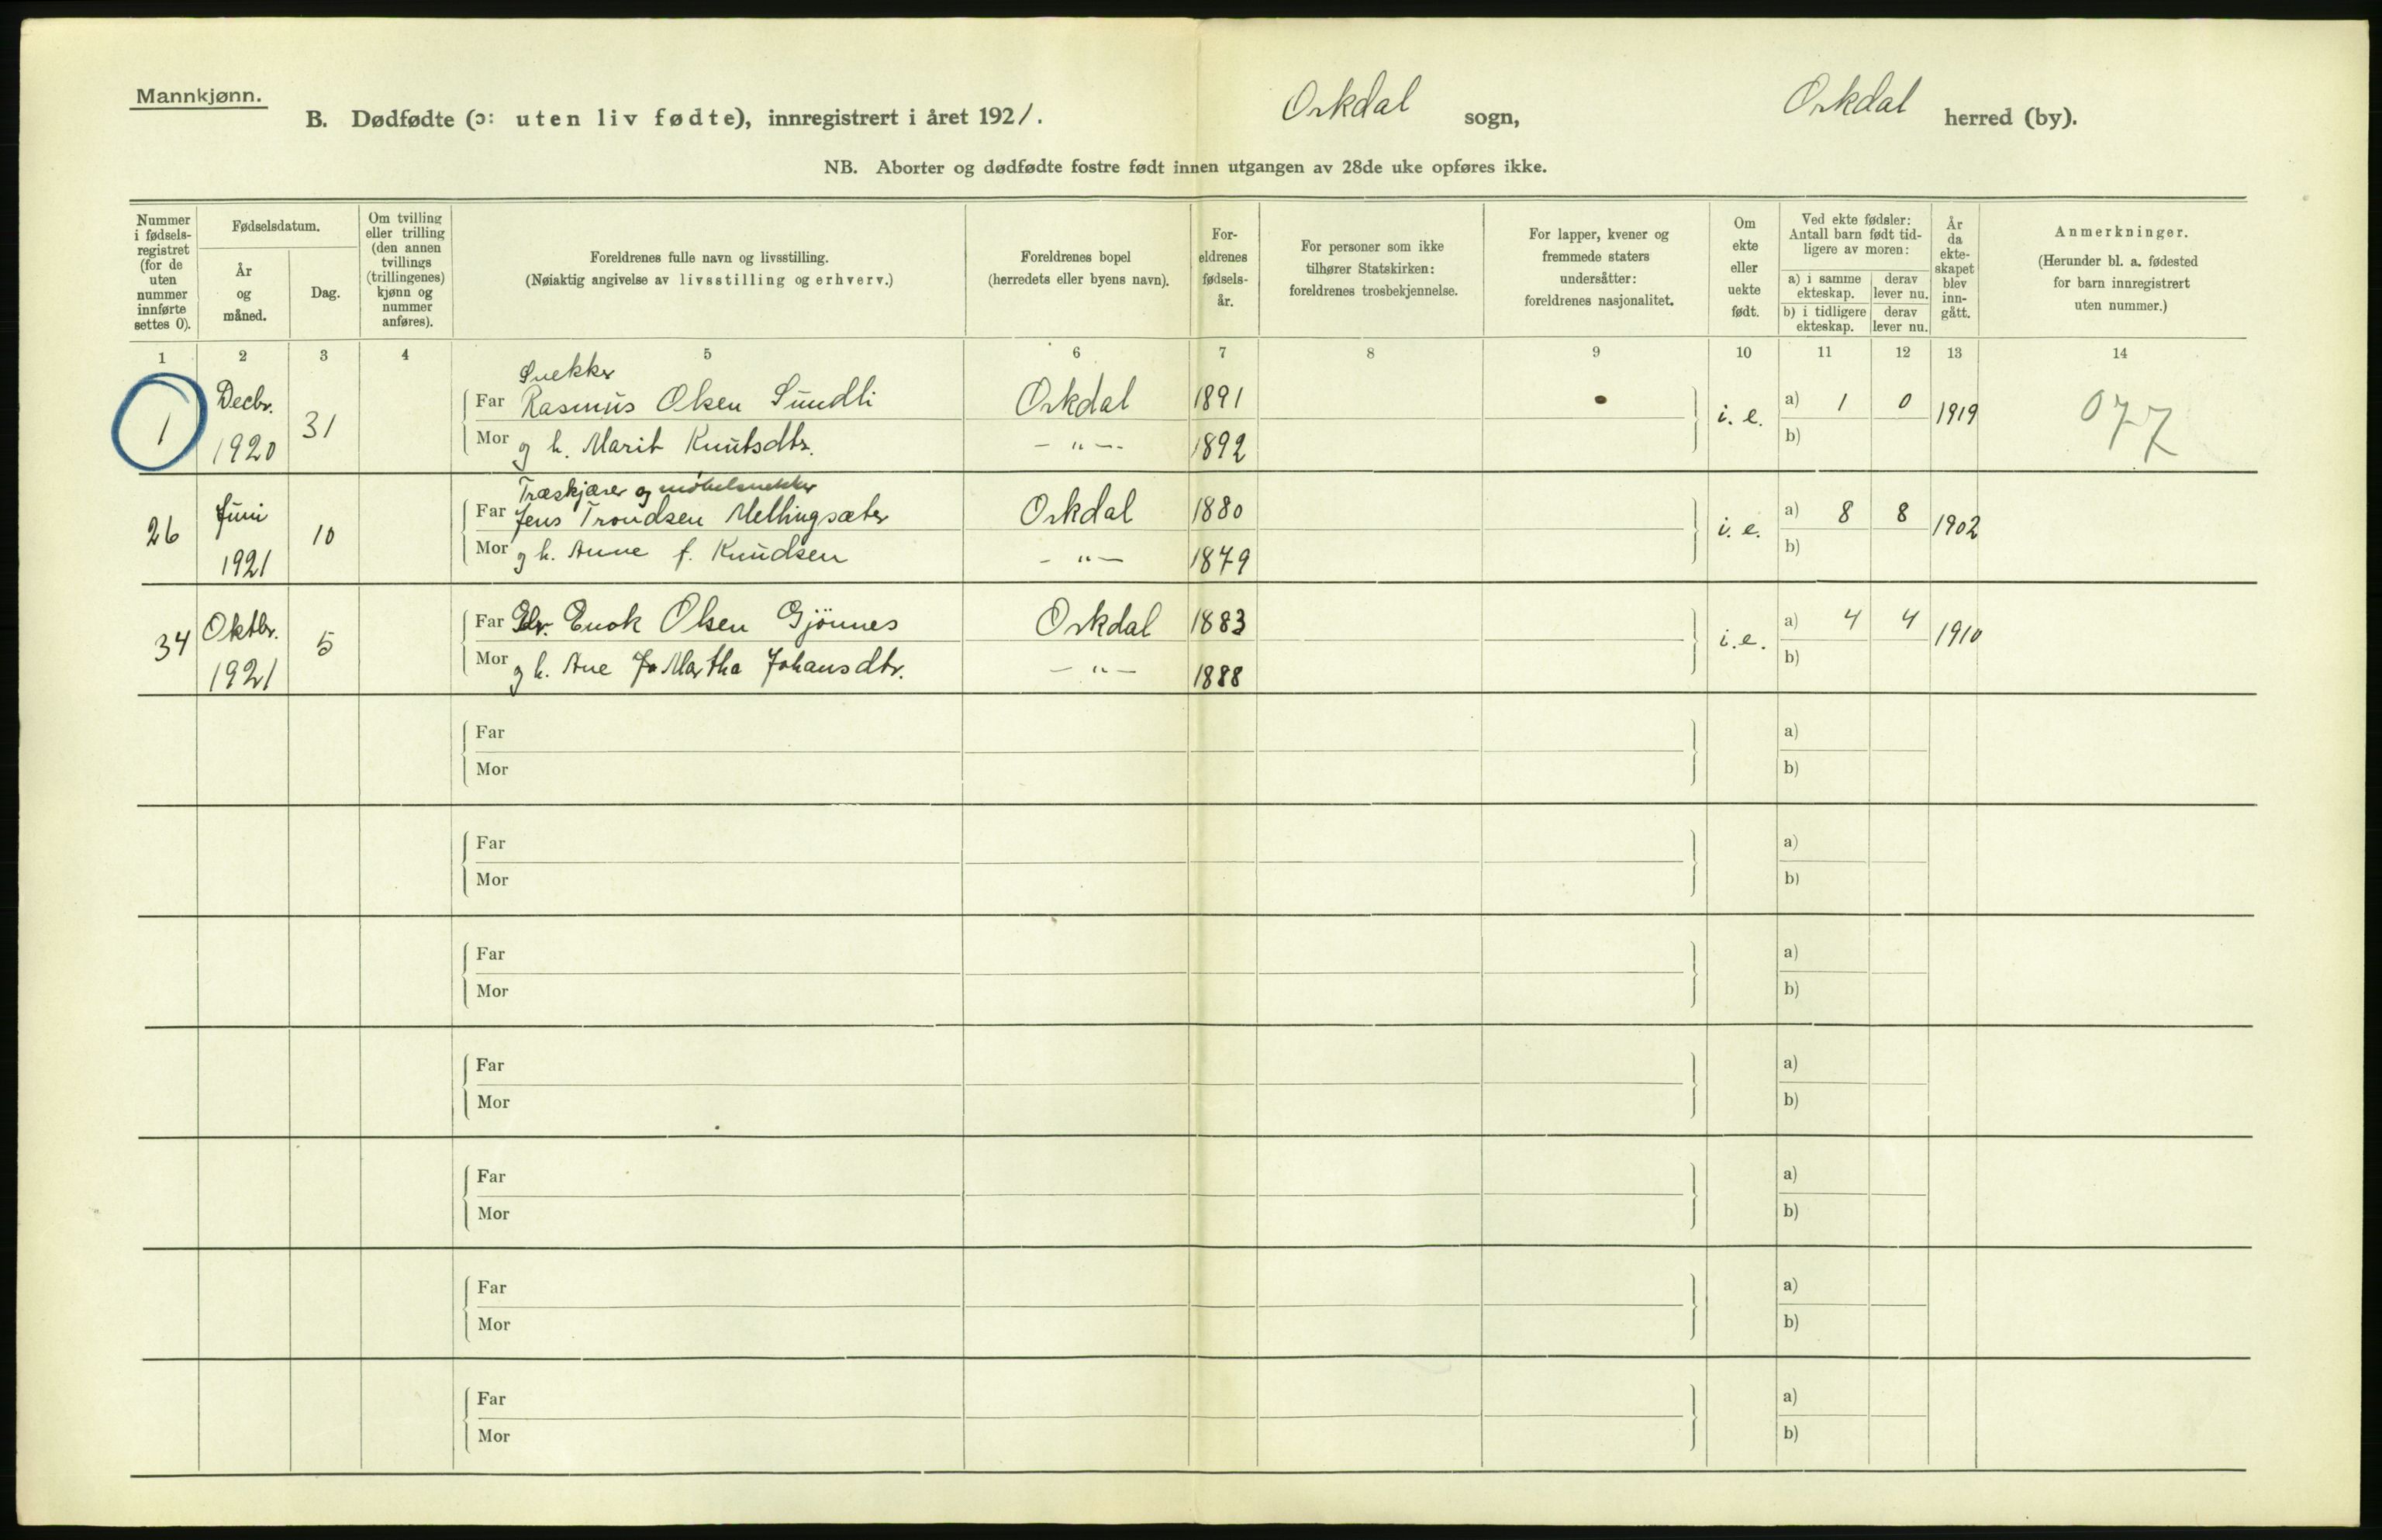 Mannkjønn.
B. Dødfødte (ɔ: uten liv fødte), innregistrert i året 1921. Orkdal sogn, Orkdal herred (by).
NB. Aborter og dødfødte fostre født innen utgangen av 28de uke opføres ikke.
Nummer i fødsels-registret (for de uten nummer innførte settes 0).
Fødselsdatum.
År og måned.
Dag.
Om tvilling eller trilling (den annen tvillings (trillingenes) kjønn og nummer anføres).
Foreldrenes fulle navn og livsstilling.
(Nøiaktig angivelse av livsstilling og erhverv.)
Foreldrenes bopel
(herredets eller byens navn).
For-eldrenes fødsels-år.
For personer som ikke tilhører Statskirken: foreldrenes trosbekjennelse.
For lapper, kvener og fremmede staters undersåtter: foreldrenes nasjonalitet.
Om ekte eller uekte født.
Ved ekte fødsler: Antall barn født tid-ligere av moren:
a) i samme ekteskap.
derav lever nu.
b) i tidligere ekteskap.
derav lever nu.
År da ekte-skapet blev inn-gått.
Anmerkninger.
(Herunder bl. a. fødested for barn innregistrert uten nummer.)
1 2 3 4 5 6 7 8 9 10 11 12 13 14
Snekker
1 Decbr. 1920 31 Far Rasmus Olsen Sundli Orkdal 1891 i. e. a) 1 0 1919 077
Mor g h. Marit Knutsdtr. - " - 1892 b)
Træskjærer og møbelsnekker
26 Juni 1921 10 Far Jens Trondsen Mellingsæter Orkdal 1880 i. e. a) 8 8 1902
Mor g h. Anne f. Knudsen - " - 1879 b)
34 Oktbr. 1921 5 Far Enok Olsen Gjönnes Orkdal 1883 i. e. a) 4 4 1910
Mor g h. Ane Martha Johansdtr. - " - 1888 b)
Far a)
Mor b)
Far a)
Mor b)
Far a)
Mor b)
Far a)
Mor b)
Far a)
Mor b)
Far a)
Mor b)
Far a)
Mor b)